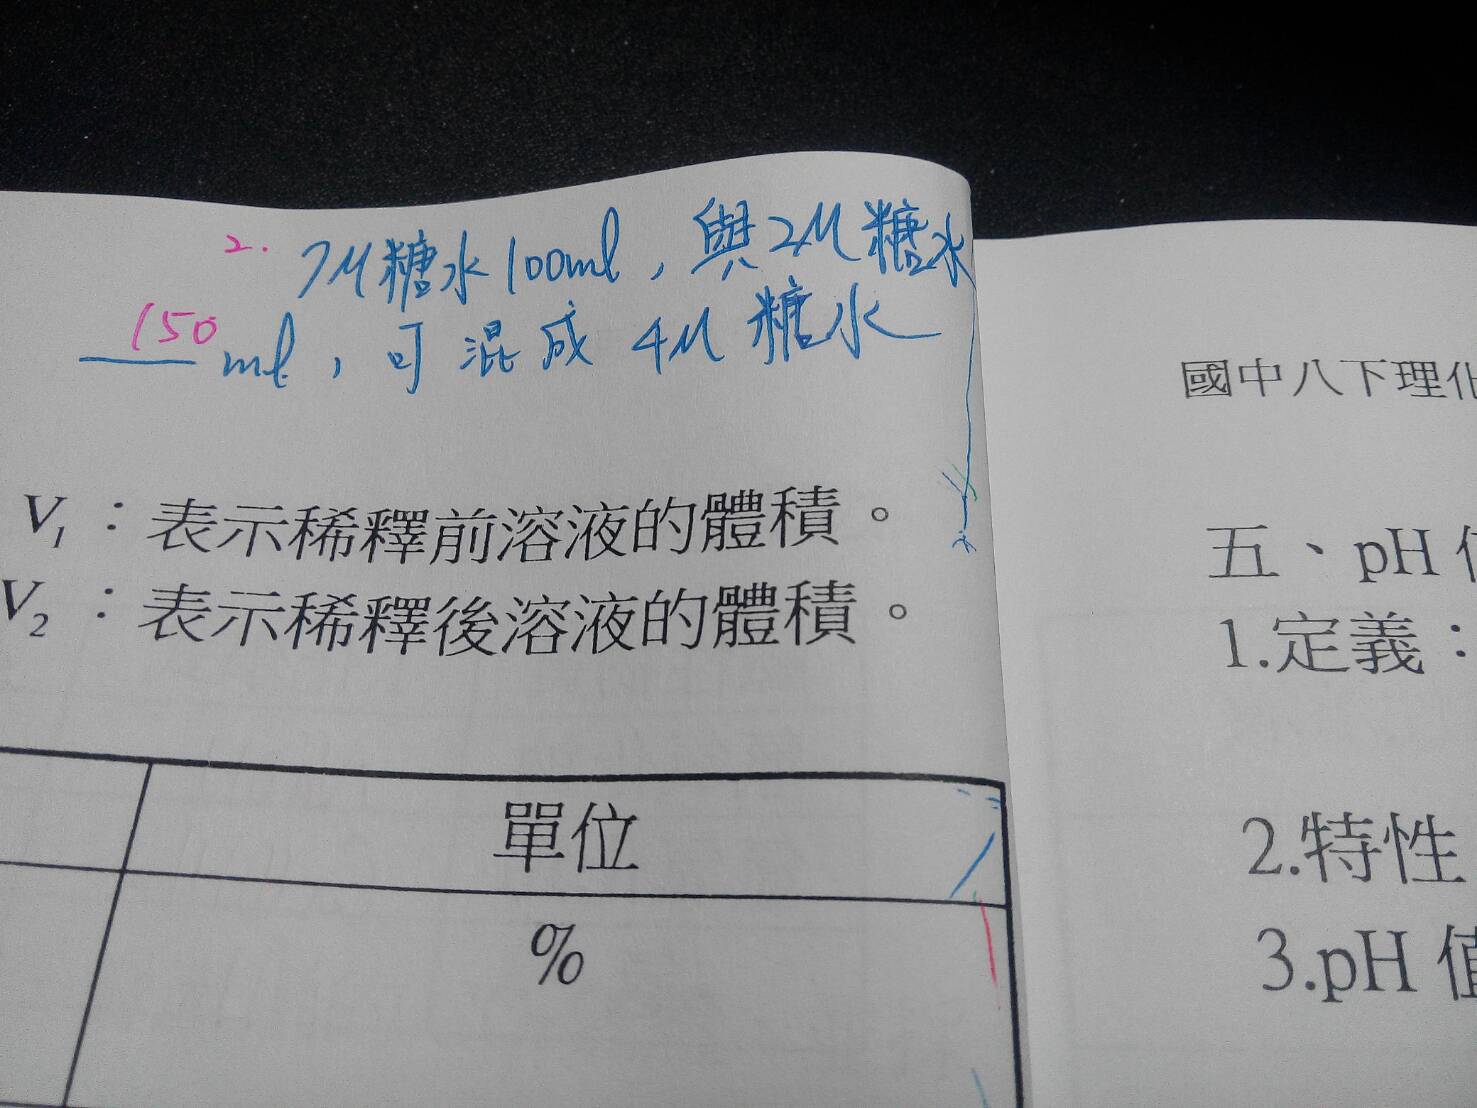 2. 7M糖水100ml，與2M糖水
150ml，可混成4M糖水
V1：表示稀釋前溶液的體積。
V2：表示稀釋後溶液的體積。
單位
%
國中八下理化
五、pH
1.定義：
2.特性
3.pH 值